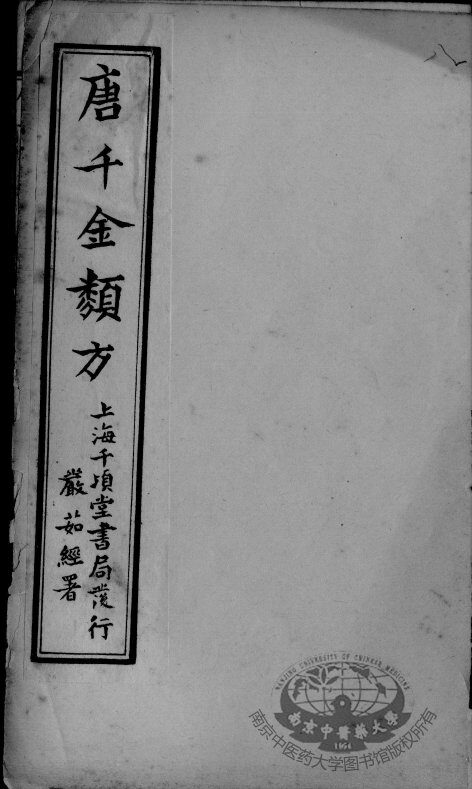 唐千金類方
上海千頃堂書局發行
嚴茹經署
NANJING UNIVERSITY OF CHINESE MEDICINE
南京中醫藥大學
1954
南京中医药大学图书馆版权所有